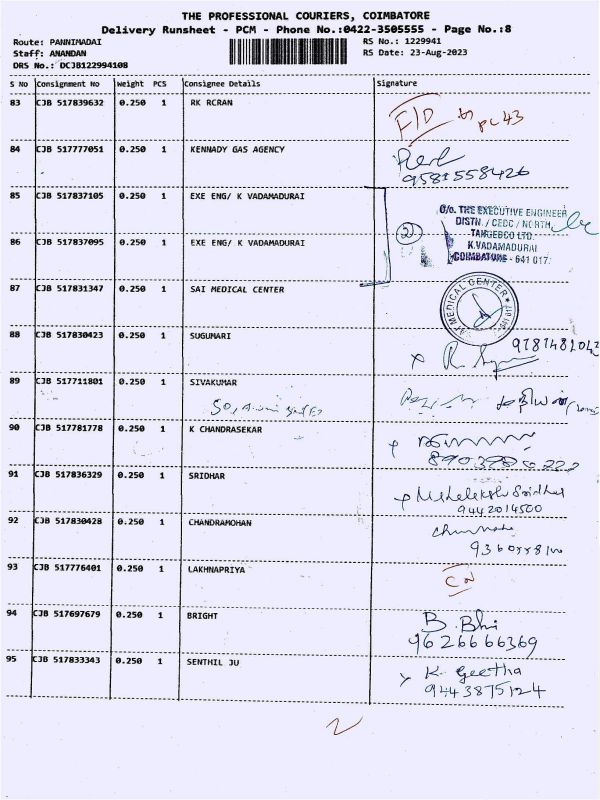 THE PROFESSIONAL COURIERS, COIMBATORE
Delivery Runsheet - PCM - Phone No.:0422-3505555 - Page No.:8
Route: PANNIMADAI
Staff: ANANDAN
DRS No.: DCJB122994108
RS No.: 1229941
RS Date: 23-Aug-2023
S No Consignment No Weight PCS Consignee Details Signature
83 CJB 517839632 0.250 1 RK RCRAN F/D
84 CJB 517777051 0.250 1 KENNADY GAS AGENCY
9581558426
85 CJB 517837105 0.250 1 EXE ENG/ K VADAMADURAI
86 CJB 517837095 0.250 1 EXE ENG/ K VADAMADURAI
2
O/o. THE EXECUTIVE ENGINEER
DISTN. / CEDC / NORTH,
TANGEDCO LTD.
K.VADAMADURAI
COIMBATORE - 641 017.
87 CJB 517831347 0.250 1 SAI MEDICAL CENTER
MEDICAL CENTER
88 CJB 517830423 0.250 1 SUGUMARI
89 CJB 517711801 0.250 1 SIVAKUMAR
90 CJB 517781778 0.250 1 K CHANDRASEKAR
91 CJB 517836329 0.250 1 SRIDHAR
Sridhar
9442014500
92 CJB 517830428 0.250 1 CHANDRAMOHAN
93 CJB 517776401 0.250 1 LAKHNAPRIYA
94 CJB 517697679 0.250 1 BRIGHT
B. Bhi
9626666369
95 CJB 517833343 0.250 1 SENTHIL JU
K. Geetha
9443875124